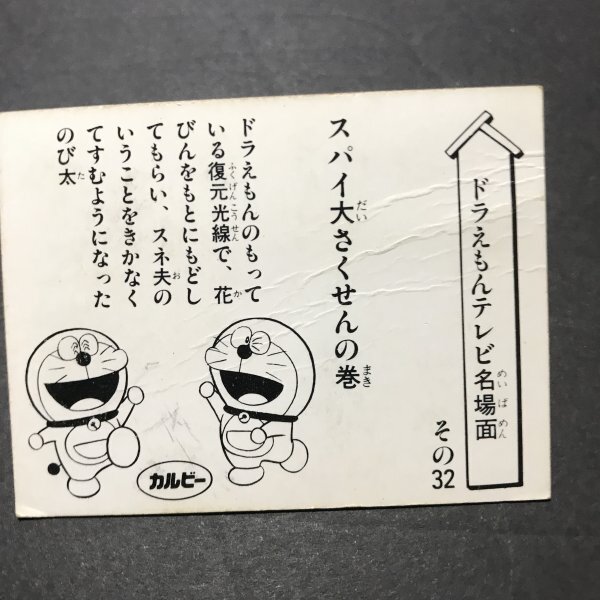 ドラえもんテレビ名場面
その32
スパイ大さくせんの巻
ドラえもんのもって
いる復元光線で、花
びんをもとにもどし
てもらい、スネ夫の
いうことをきかなく
てすむようになった
のび太
カルビー